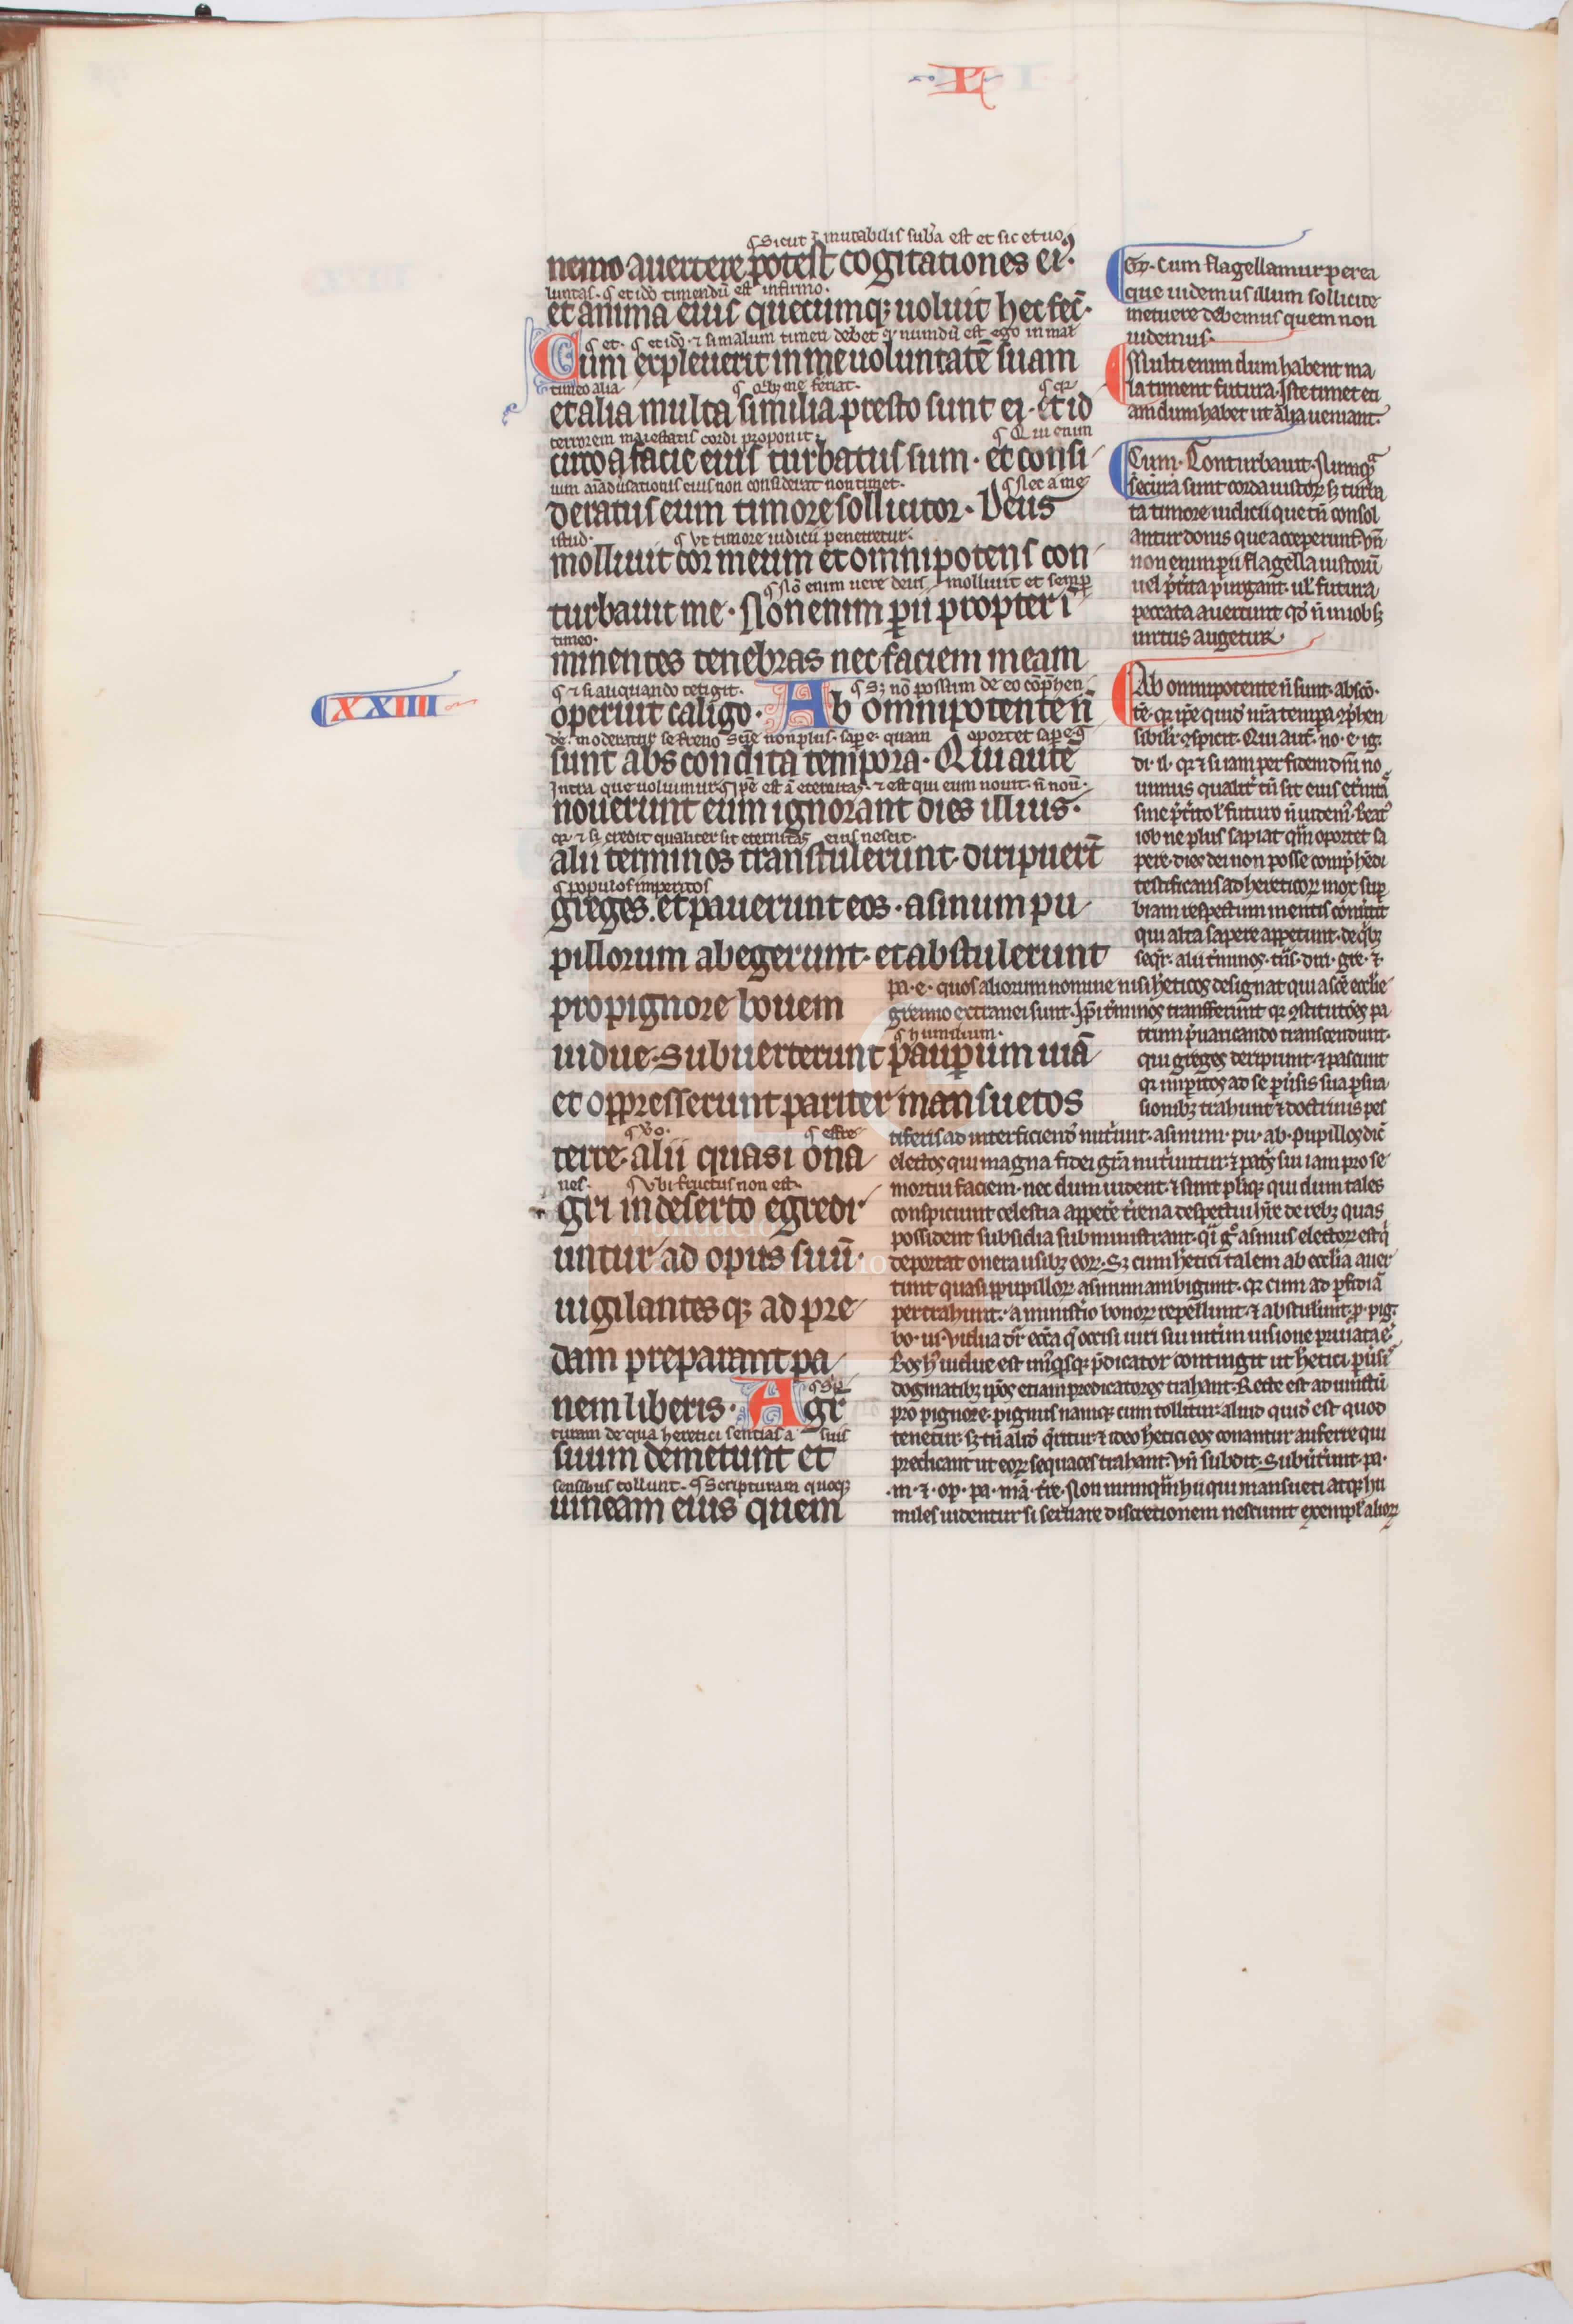 L
¶ Sicut ī mutabilis subᷓa est et sic et uoꝰ
nemo auertere potest cogitationes ei᷒.
luntas. ¶ et idō timendū est infirmo.
et anima eius quecumqꝫ uoluit hec fec̄.
¶ et. ¶ et idō. ⁊ si malum timeri debet qꝛ nundū est ego in mat
Cum expleuerit in me uoluntatē suam
timeo alia ¶ Qꝫ me feriat. ¶ qꝛ
et alia multa similia presto sunt ei. et id
terrorem maiestatis cordi proponit. ¶ Qui enim
circo a facie eius turbatus sum. et consi
uim aīaduersionis eius non considerat non timet. ¶ Nec a me
deratus eum timore sollicitor. Deus
istud. ¶ Vt timore iudicii penetretur.
molliuit cor meum et omnipotens con
¶ Nō enim uere deus molliuit et semꝑ
turbauit me. Non enim ꝑii propter ī
timeo.
minentes tenebras nec faciem meam
¶ ⁊ si aliquando tetigit. ¶ Sꝫ nō possum de eo cōp̄hen
XXIIII
operuit caligo. Ab omnipotente n̄
de. moderatur se freno scīe non plus. sapē. quam oportet sapē. ¶
sunt abscondita tempora. Qui autē
Intra que uoluimur. ¶ Ipē est ī eternitas. ⁊ est qui eum nouit. n̄ nouīt.
nouerunt eum ignorant dies illius.
qꝛ ⁊ sꝫ credit qualiter sit eternitas eius nescit.
alii terminos transtulerunt. diripuert̄
¶ populos imperitos
greges. et pauerunt eos. asinum pu
pillorum abegerunt. et abstulerunt
pro pignore bouem
uidue. Subuerterunt pauꝑum uiā
¶ humilium.
et oppresserunt pariter mansuetos
¶ ŏo. ¶ effre
terre. alii quasi ona
nes. ¶ Vbi fructus non est.
gri in deserto egredi
untur ad opus suū.
uigilantesqꝫ ad pre
dam preparant pa
nem liberis. Agr̄
¶ Sc̄p
turam de qua heretici sentīas a suis
suum demetunt et
sensibus tollunt. ¶ Scripturam quoqꝫ
uineam eius quem
Gꝛ. Cum flagellamur per ea
que uidemus illum sollicite
metuere debemus quem non
uidemus.
Multi enim dum habent ma
la timent futura. Iste timet eti
am dum habet ut alia ueniant.
Cum. Conturbauit. Nunqᷓ
secura sunt corda iustoꝝ sꝫ turba
ta timore iudicii que tn̄ consol
antur donis que acceperunt. Vn̄
non enim ꝑii flagella iustorū
uel pͥtita purgant. ul̓ futura
peccata auertunt qd̓ n̄ in iob sꝫ
uirtus augetur.
Ab omnipotente n̄ sunt. abscō.
tē. qꝛ ipē quid̓ nr̄a tempa ꝯp̄hen
sibilit̓ ꝯspicit. Qui aut̄. no. e. ig.
di. il. qꝛ ⁊ si iam per fidem dn̄m no
uimus qualit̓ tn̄ sit eius et̓nitā
sine pͥtito ul̓ futuro n̄ uidemꝰ. Beatꝰ
iob ne plus sapiat qᷓm oportet sa
pere. dies dei non posse comp̄hēdi
testificans ad hereticoꝝ mox suꝑ
biam respectum mentis cōmittit
qui alta sapere appetunt. de qͥbꝫ
seqͥr. alii t̓minos. tn̄s. diri. gre. ⁊
pa. e. quos aliorum nomine nisi h̓eticos designat qui a scē ecclie
gremio extranei sunt. Ip̄i t̓minos transferunt qꝛ ꝯstitutōes pa
trum p̄uaricando transcendunt.
qui greges deripiunt. ⁊ pascunt
qꝛ imꝑitos ad se ꝑuersis suis ꝑsua
sionibꝫ trahunt ⁊ doctrinis pes
tiferis ad interficiend̓ nut̓unt. asinum. pu. ab. Pupillos dic̄
electos qui magna fidei gr̄a nut̓untur. ⁊ patris sui iam pro se
mortui faciem. nec dum uident. ⁊ sunt pl̓iqꝫ qui dum tales
conspiciunt celestia appet̓e t̓rena despectui h̓re de rebꝫ quas
possident subsidia subministrant. qͥ g̊ asinus electoꝝ est qͥ
deportat onera usibꝫ eoꝝ. Sꝫ cum h̓etici talem ab ecclia auer
tunt quasi pupilloꝝ asinum ambigunt. qꝛ cum ad ꝑfidiā
pertrahunt. a minist̓io bonoꝝ repellunt. ⁊ abstulunt. ꝓ pig.
bo. ui. Vidua dr̄ ecc̄a qͥ occisi uiri sui int̓im uisione priuata ē.
Bos h̓ uidue est un̓qͥsqꝫ p̄dicator contingit ut h̓etici ꝑuersi
dogmatibꝫ ipōs etiam predicatores trahant. Recte est adiunctū
pro pignore. pignus namqꝫ cum tollitur. aliud quid̓ est quod
tenetur. sꝫ tn̄ aliud q̓ritur. ⁊ ideo h̓etici eos conantur auferre qui
predicant ut eoꝝ sequaces trahant. Vn̄ subdit. Subūt̓unt. pa.
.m. ⁊. op. pa. mā. t̓re. Non nunqᷓm hii qui mansueti atqꝫ hu
miles uidentur si seruare discretionem nesciunt exempl̓ alioꝝ